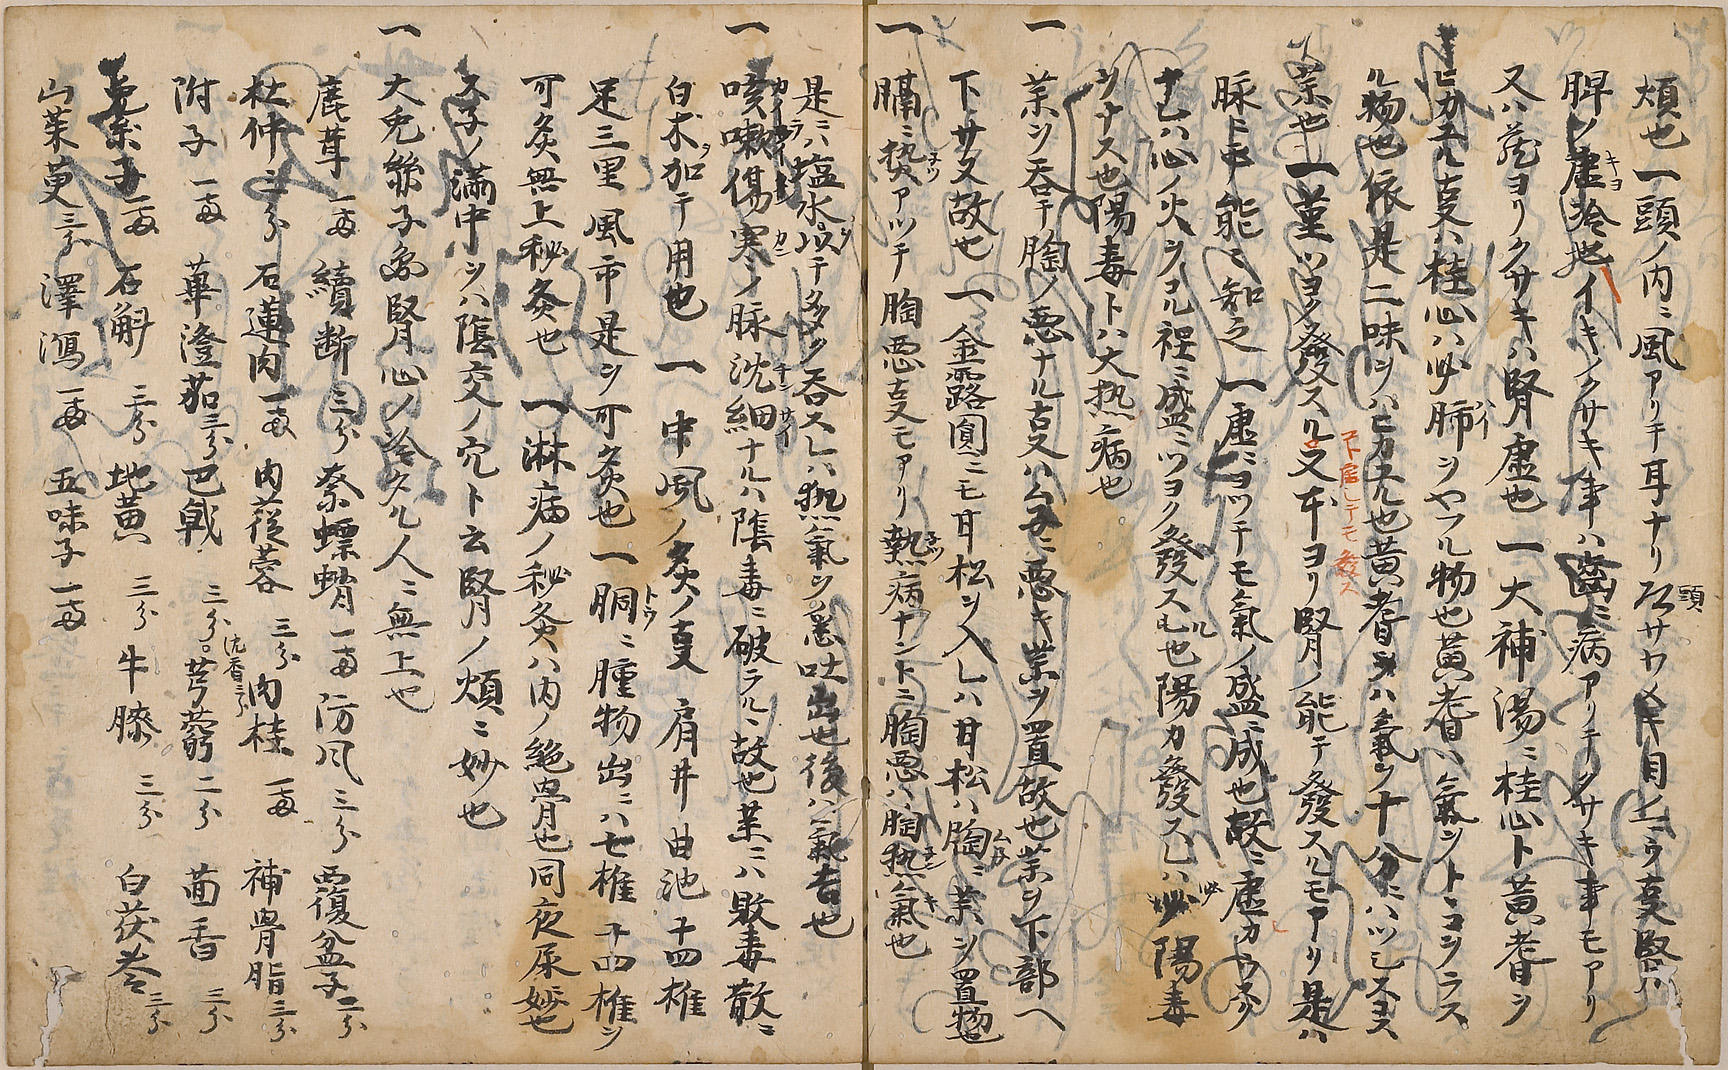 煩也一頭ノ内ニ風アリテ耳ナリ頭サワメキ目ニ亥腎ハ
脾ノ虚冷也イキノクサキ事ハ齒ニ病アリテクサキ事モアリ
又ハ蔵ヨリクサキハ腎虚也一大補湯ニ桂心ト黄耆ヲ
ヒカユル亥ハ桂心ハ必肺ヲヤフル物也黄耆ハ氣ヲトヽコヲラス
ル物也依是二味ヲハヒカユル也黄耆ヲハ氣ヲ十分ニハ
薬也一菫ツヨク發スル又本ヨリ腎ノ能テ發スルモアリ是ハ
不居シテモ發ス
脉ト串能ニ知之一虚ニヨツテモ氣ノ盛ニ成也故ニ虚カウスク
ナレハ心ノ火ヲコル裡ニ盛ニツヨク發スル也陽カ發スレハ必陽毒
ヲナス也陽毒トハ大热病也
一 薬ヲ呑テ胸ノ悪ナル古又ハ悪キ薬ヲ置故也薬ヲ下部ヘ
下サヌ故也一金露圓ニモ甘松ヲ入レハ甘松ハ胸ニ薬ヲ置物也
一 膈ニ热アツテ胸悪亥モアリ熱病ナントニ胸悪ハ胸热氣也
是ニハ塩水ヲ以テ多メク呑スレハ热氣ヲ悪吐出也後ハ氣吉也
一 咳嗽傷寒ノ脉沈細ナルハ陰毒ニ破ラルヽ故也薬ニハ敗毒散ニ
白木加テ用也一中風ノ灸ノ亥肩井曲池十四椎
足三里風市是ヲ可灸也一胴ニ腫物出ニハ七椎十四椎ヲ
可灸無上秘灸也一淋病ノ秘灸ハ内ノ絶骨也同夜尿妙也
ス子ノ満中ヲハ陰交ノ穴ト云腎ノ煩ニ妙也
一 大兎絲子丸腎心ノ冷タル人ニ無上也
鹿茸一両 續断三分 桑螵蛸一両 防風三分 覆盆子二分
杜仲三分 石蓮肉一両 肉蓯蓉三分 肉桂一両 補骨脂三分
附子一両 蓽澄茄三分 巴戟三分 沈香三分 芎藭二分 茴香三分
兎糸子一両 石斛三分 地黄三分 牛膝三分 白茯苓三分
山茱萸三分 澤瀉一両 五味子一両